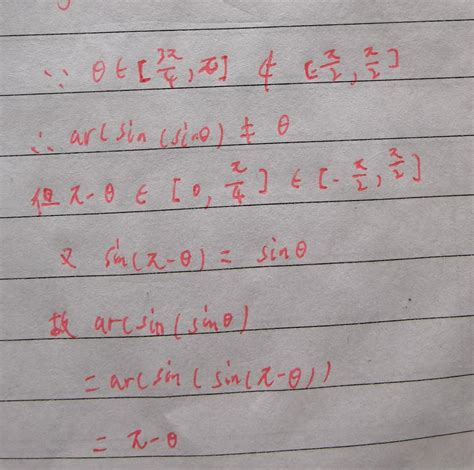 ∵ θ∈[3π/4, π] ∉ [-π/2, π/2]
∴ arcsin(sinθ) ≠ θ
但 π-θ ∈ [0, π/4] ∈ [-π/2, π/2]
又 sin(π-θ) = sinθ
故 arcsin(sinθ)
= arcsin(sin(π-θ))
= π-θ